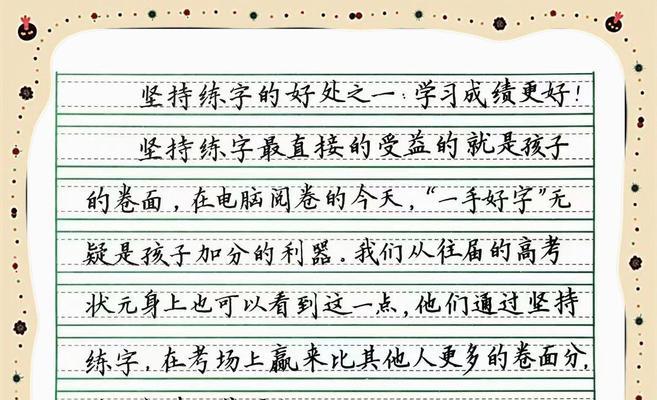 坚持练字的好处之一:学习成绩更好!
坚持练字最直接的受益的就是孩子
的卷面,在电脑阅卷的今天,“一手好字”无
疑是孩子加分的利器。我们从往届的高考
状元身上也可以看到这一点,他们通过坚持
练字,在考场上赢来比其他人更多的卷面分,